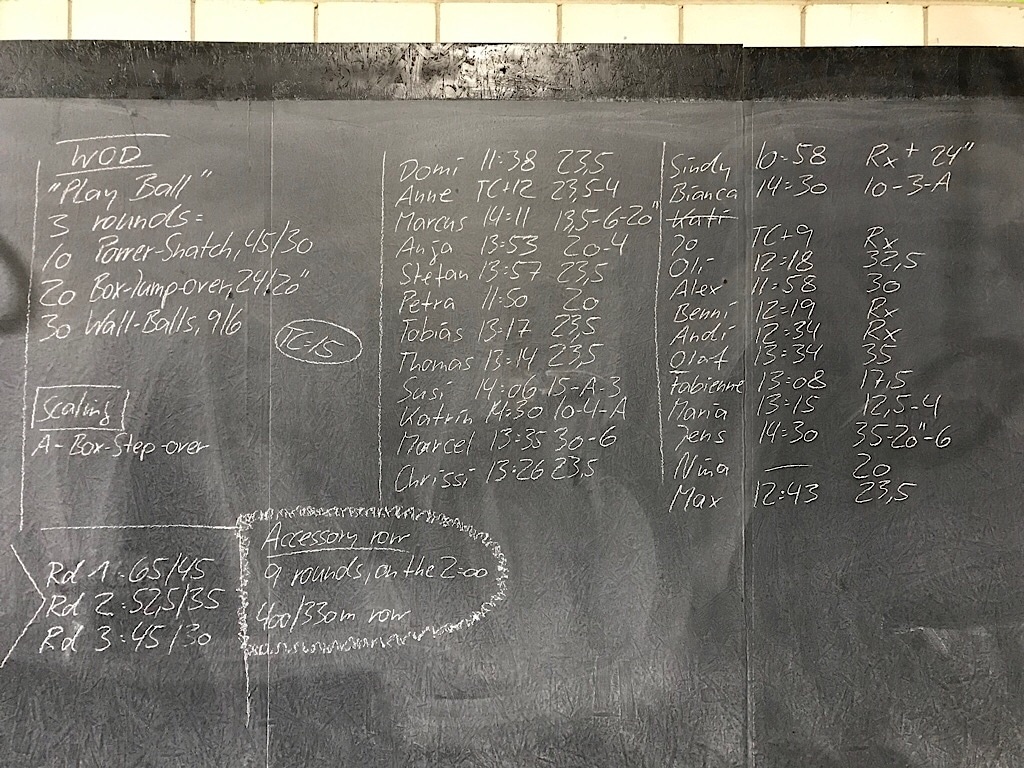 WOD
"Play Ball"
3 rounds=
10 Power-Snatch, 45/30
20 Box-Jump-over, 24/20"
30 Wall-Balls, 9/6
TC=15
Scaling
A- Box-Step-over
Rd 1: 65/45
Rd 2: 52,5/35
Rd 3: 45/30
Accessory row
9 rounds, on the 2=00
400/330m row
Domi 11:38 23,5
Anne TC+12 23,5-4
Marcus 14:11 13,5-6-20"
Anja 13=53 20-4
Stefan 13:57 23,5
Petra 11:50 20
Tobias 13:17 23,5
Thomas 13:14 23,5
Susi 14:06 15-A-3
Katrin 14:30 10-4-A
Marcel 13:35 30-6
Chrissi 13:26 23,5
Sindy 10-58 Rx+ 24"
Bianca 14=30 10-3-A
Kati
Jo TC+9 Rx
Oli 12=18 32,5
Alex 11=58 30
Benni 12=19 Rx
Andi 12=34 Rx
Olaf 13=34 35
Fabienne 13=08 17,5
Maria 13=15 12,5-4
Jens 14:30 35-20"-6
Nina — 20
Max 12:43 23,5